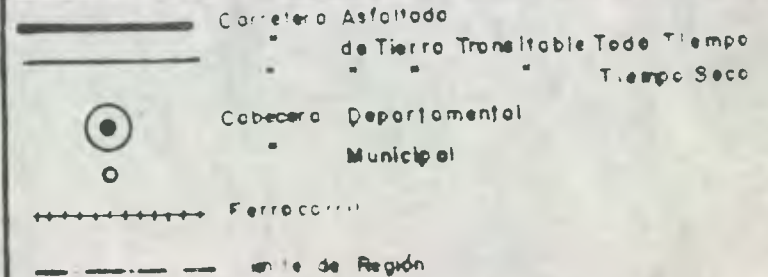 Carretera Asfaltada
" de Tierra Transitable Todo Tiempo
" " " " Tiempo Seco
Cabecera Departamental
" Municipal
Ferrocarril
de Región